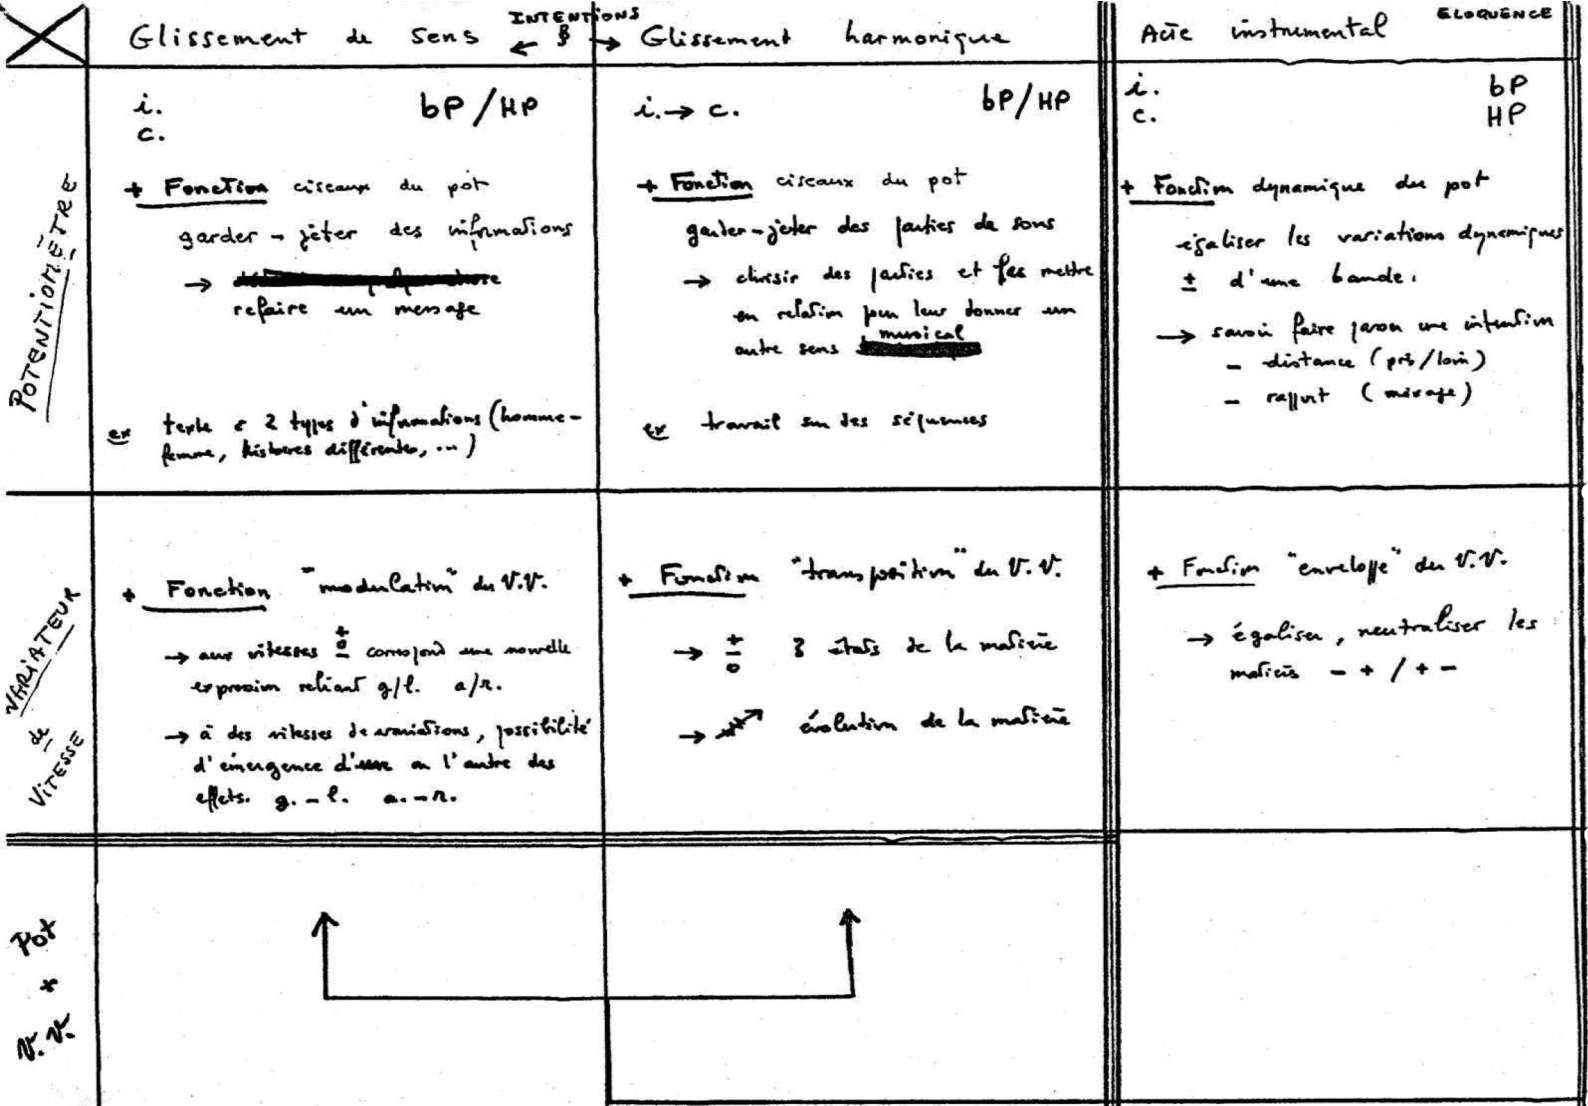 INTENTIONS
ELOQUENCE
Glissement de sens ← § → Glissement harmonique
Acte instrumental
POTENTIOMÈTRE
i. bP/HP
c.
+ Fonction ciseaux du pot
garder - jeter des informations
→
refaire un message
ex texte c 2 types d'informations (homme-
femme, histoires différentes, ...)
i. → c. bP/HP
+ Fonction ciseaux du pot
garder - jeter des parties de sons
→ choisir des parties et les mettre
en relation pour leur donner un
autre sens musical
ex travail sur des séquences
i. bP
c. HP
+ Fonction dynamique du pot
égaliser les variations dynamiques
± d'une bande.
→ savoir faire une intention
- distance (près/loin)
- rapport (mixage)
VARIATEUR
de
VITESSE
+ Fonction "modulation" du V.V.
→ aux vitesses + 0 - correspond une nouvelle
expression reliant g/l. a/r.
→ à des vitesses de variations, possibilité
d'émergence d'une ou l'autre des
effets. g. - l. a. - r.
+ Fonction "transposition" du V.V.
→ + - 0 3 états de la matière
→ évolution de la matière
+ Fonction "enveloppe" du V.V.
→ égaliser, neutraliser les
matières - + / + -
Pot
+
V.V.